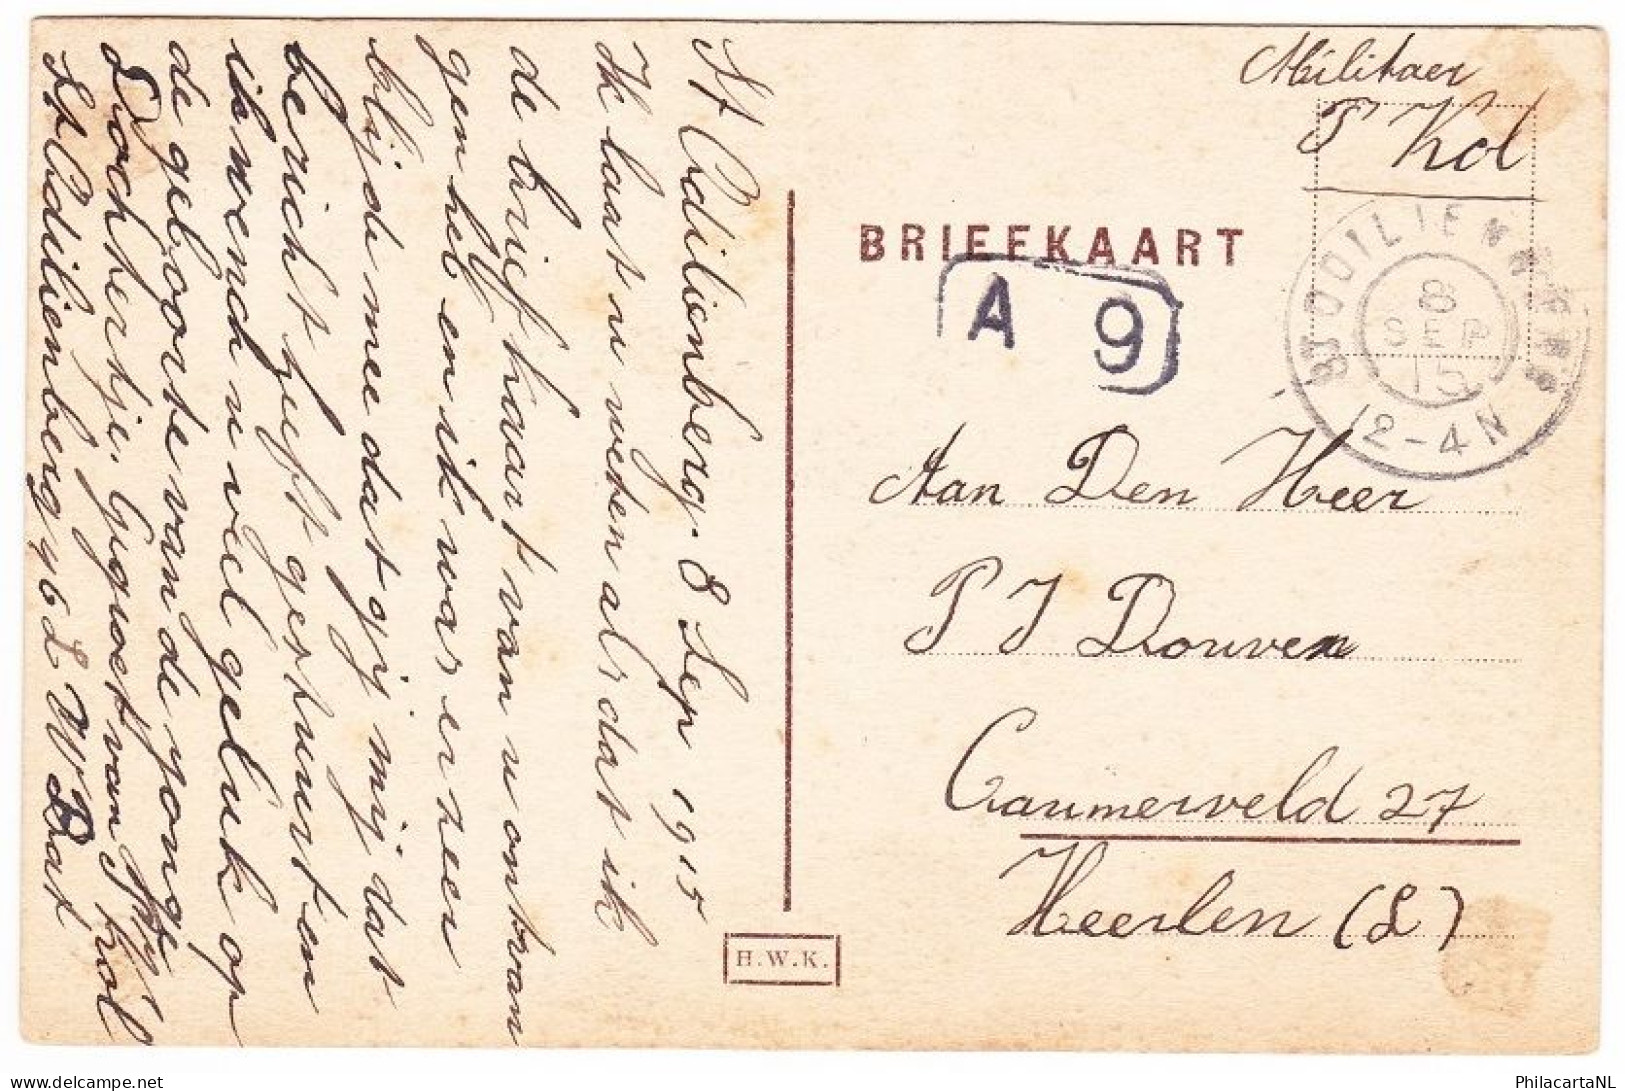 St Odilienberg. 8 Sep 1915
Ik laat u weten als dat ik
de briefkaart van u ontvan
gen heb en ik was er zeer
blijde mee dat gij mij dat
bericht heeft gestuurt en
ik wench u viel geluk op
de geboorte van de jonge
Dochtertje. Gegroet van Kol
St Odilienberg 46 L W Bat
Militaer
P Kol
BRIEFKAART
A 9
ST ODILIENBERG
8
SEP
15
2-4N
Aan Den Heer
P J Douven
Caumerveld 27
Heerlen (L)
H.W.K.
PhilacartaNL